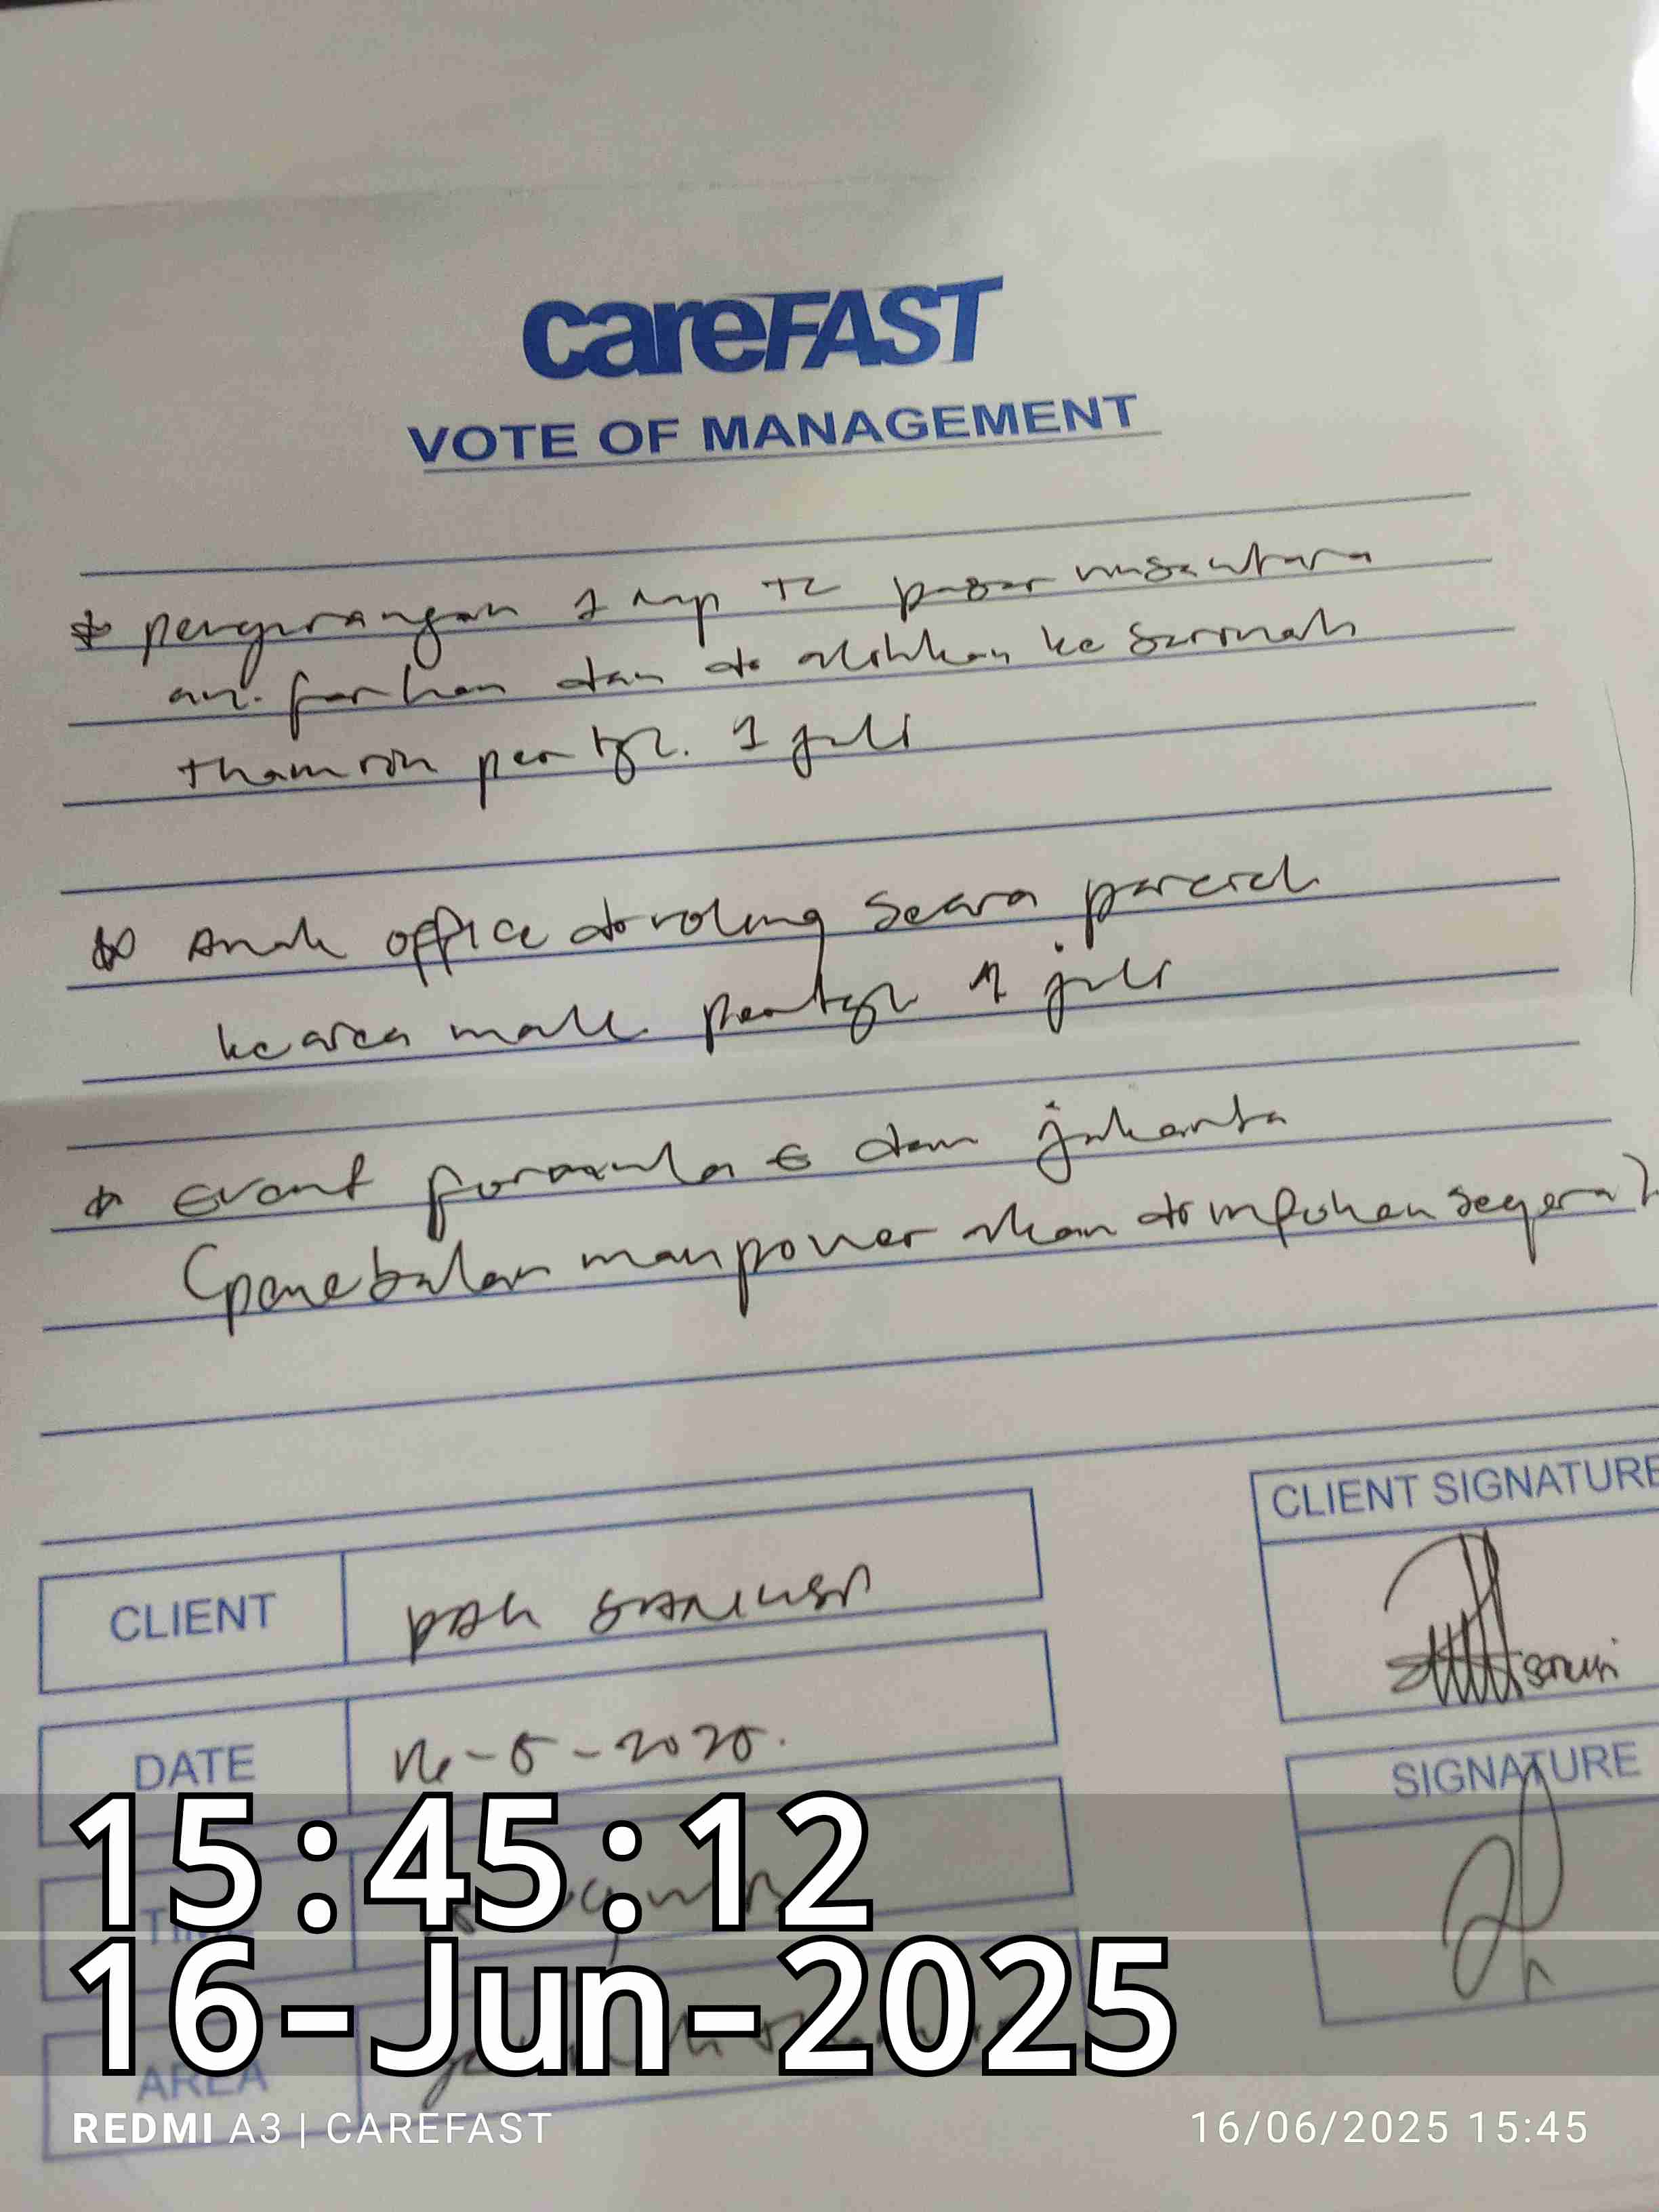 careFAST
VOTE OF MANAGEMENT
* pengurangan 1 mp TC pasar nusantara
an. farhan dan di alihkan ke Sarinah
Thamrin per tgl. 1 juli
* Anak office di roling secara parcial
ke area mall per tgl 1 juli
* Event formula E dan jakarta
(penebalan manpower akan di infokan segera)
CLIENT
PAK
CLIENT SIGNATURE
DATE
SIGNATURE
15:45:12
16-Jun-2025
AREA
REDMI A3 | CAREFAST
16/06/2025 15:45